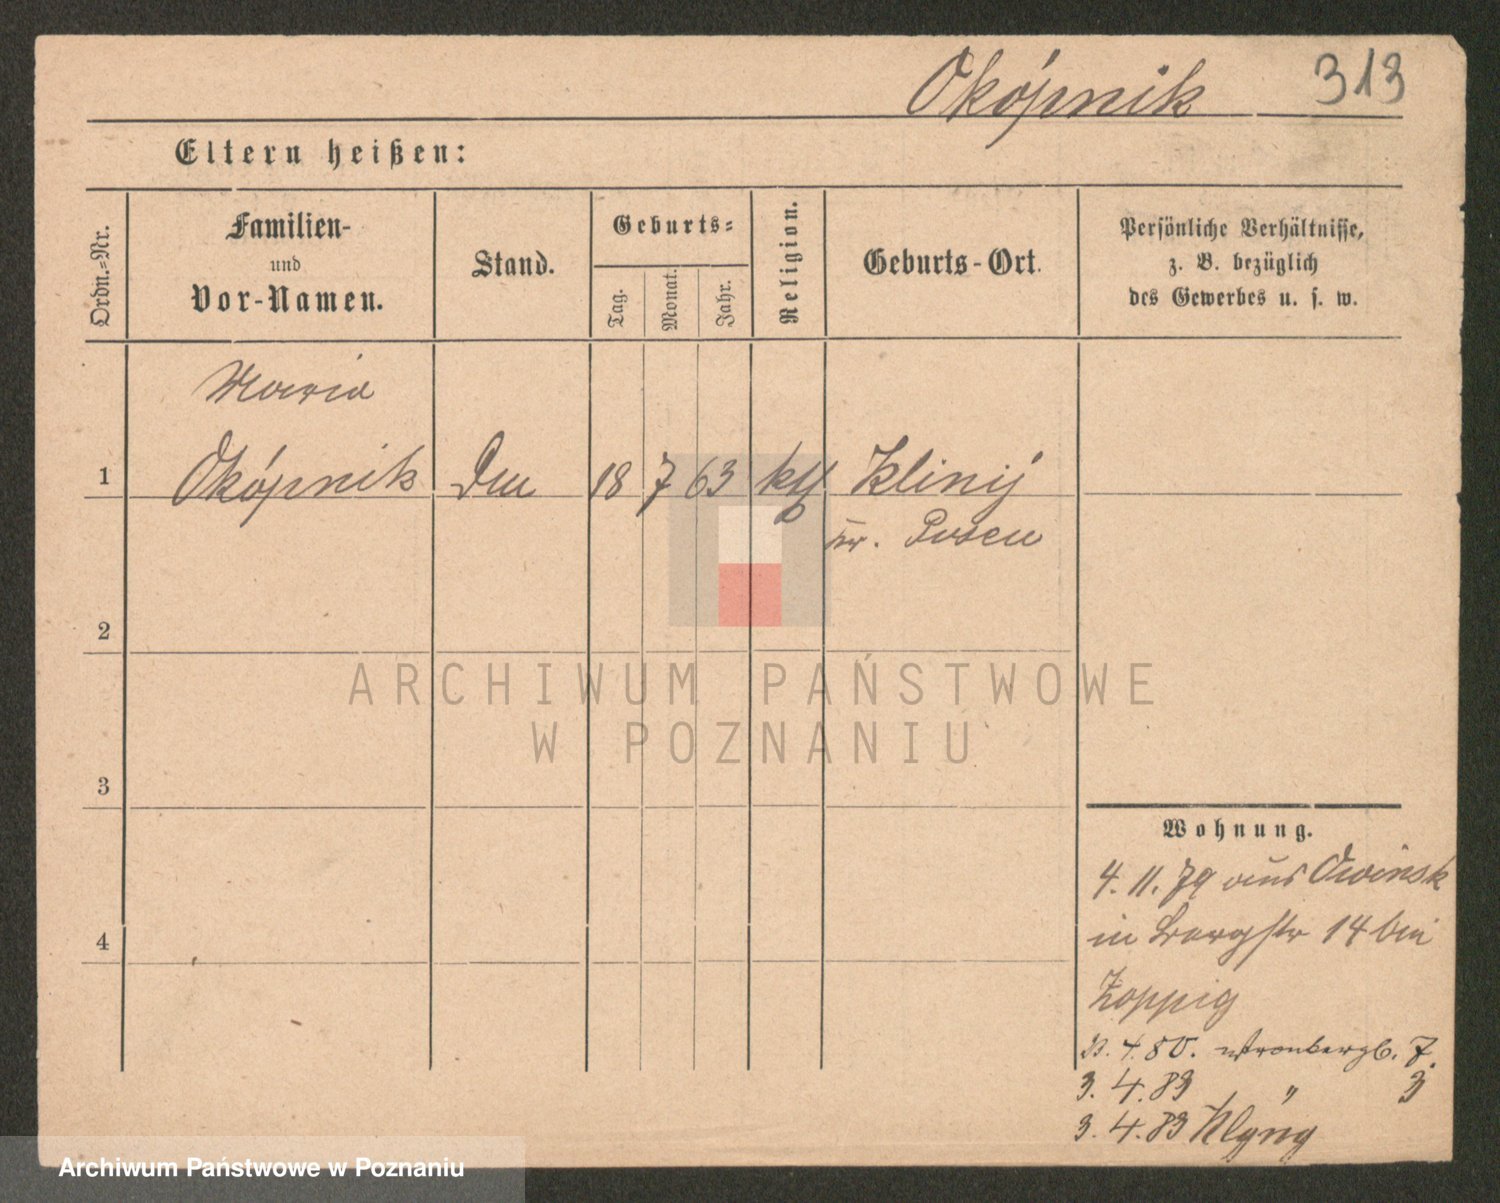 Okópnik 313
Eltern heißen:
Ordn.=Nr.
Familien-
und
Vor-Namen.
Stand.
Geburts=
Tag.
Monat.
Jahr.
Religion.
Geburts-Ort.
Persönliche Verhältnisse,
z. B. bezüglich
des Gewerbes u. s. w.
Maria
1 Okópnik 18 7 63 kth Kliny
Kr. Posen
2
ARCHIWUM PAŃSTWOWE
W POZNANIU
3
Wohnung.
4. 11. 79 aus Owinsk
4
in Bergstr 14 bei
4. 80. Kronbergb. 7.
3. 4. 83 " 3
3. 4. 83
Archiwum Państwowe w Poznaniu